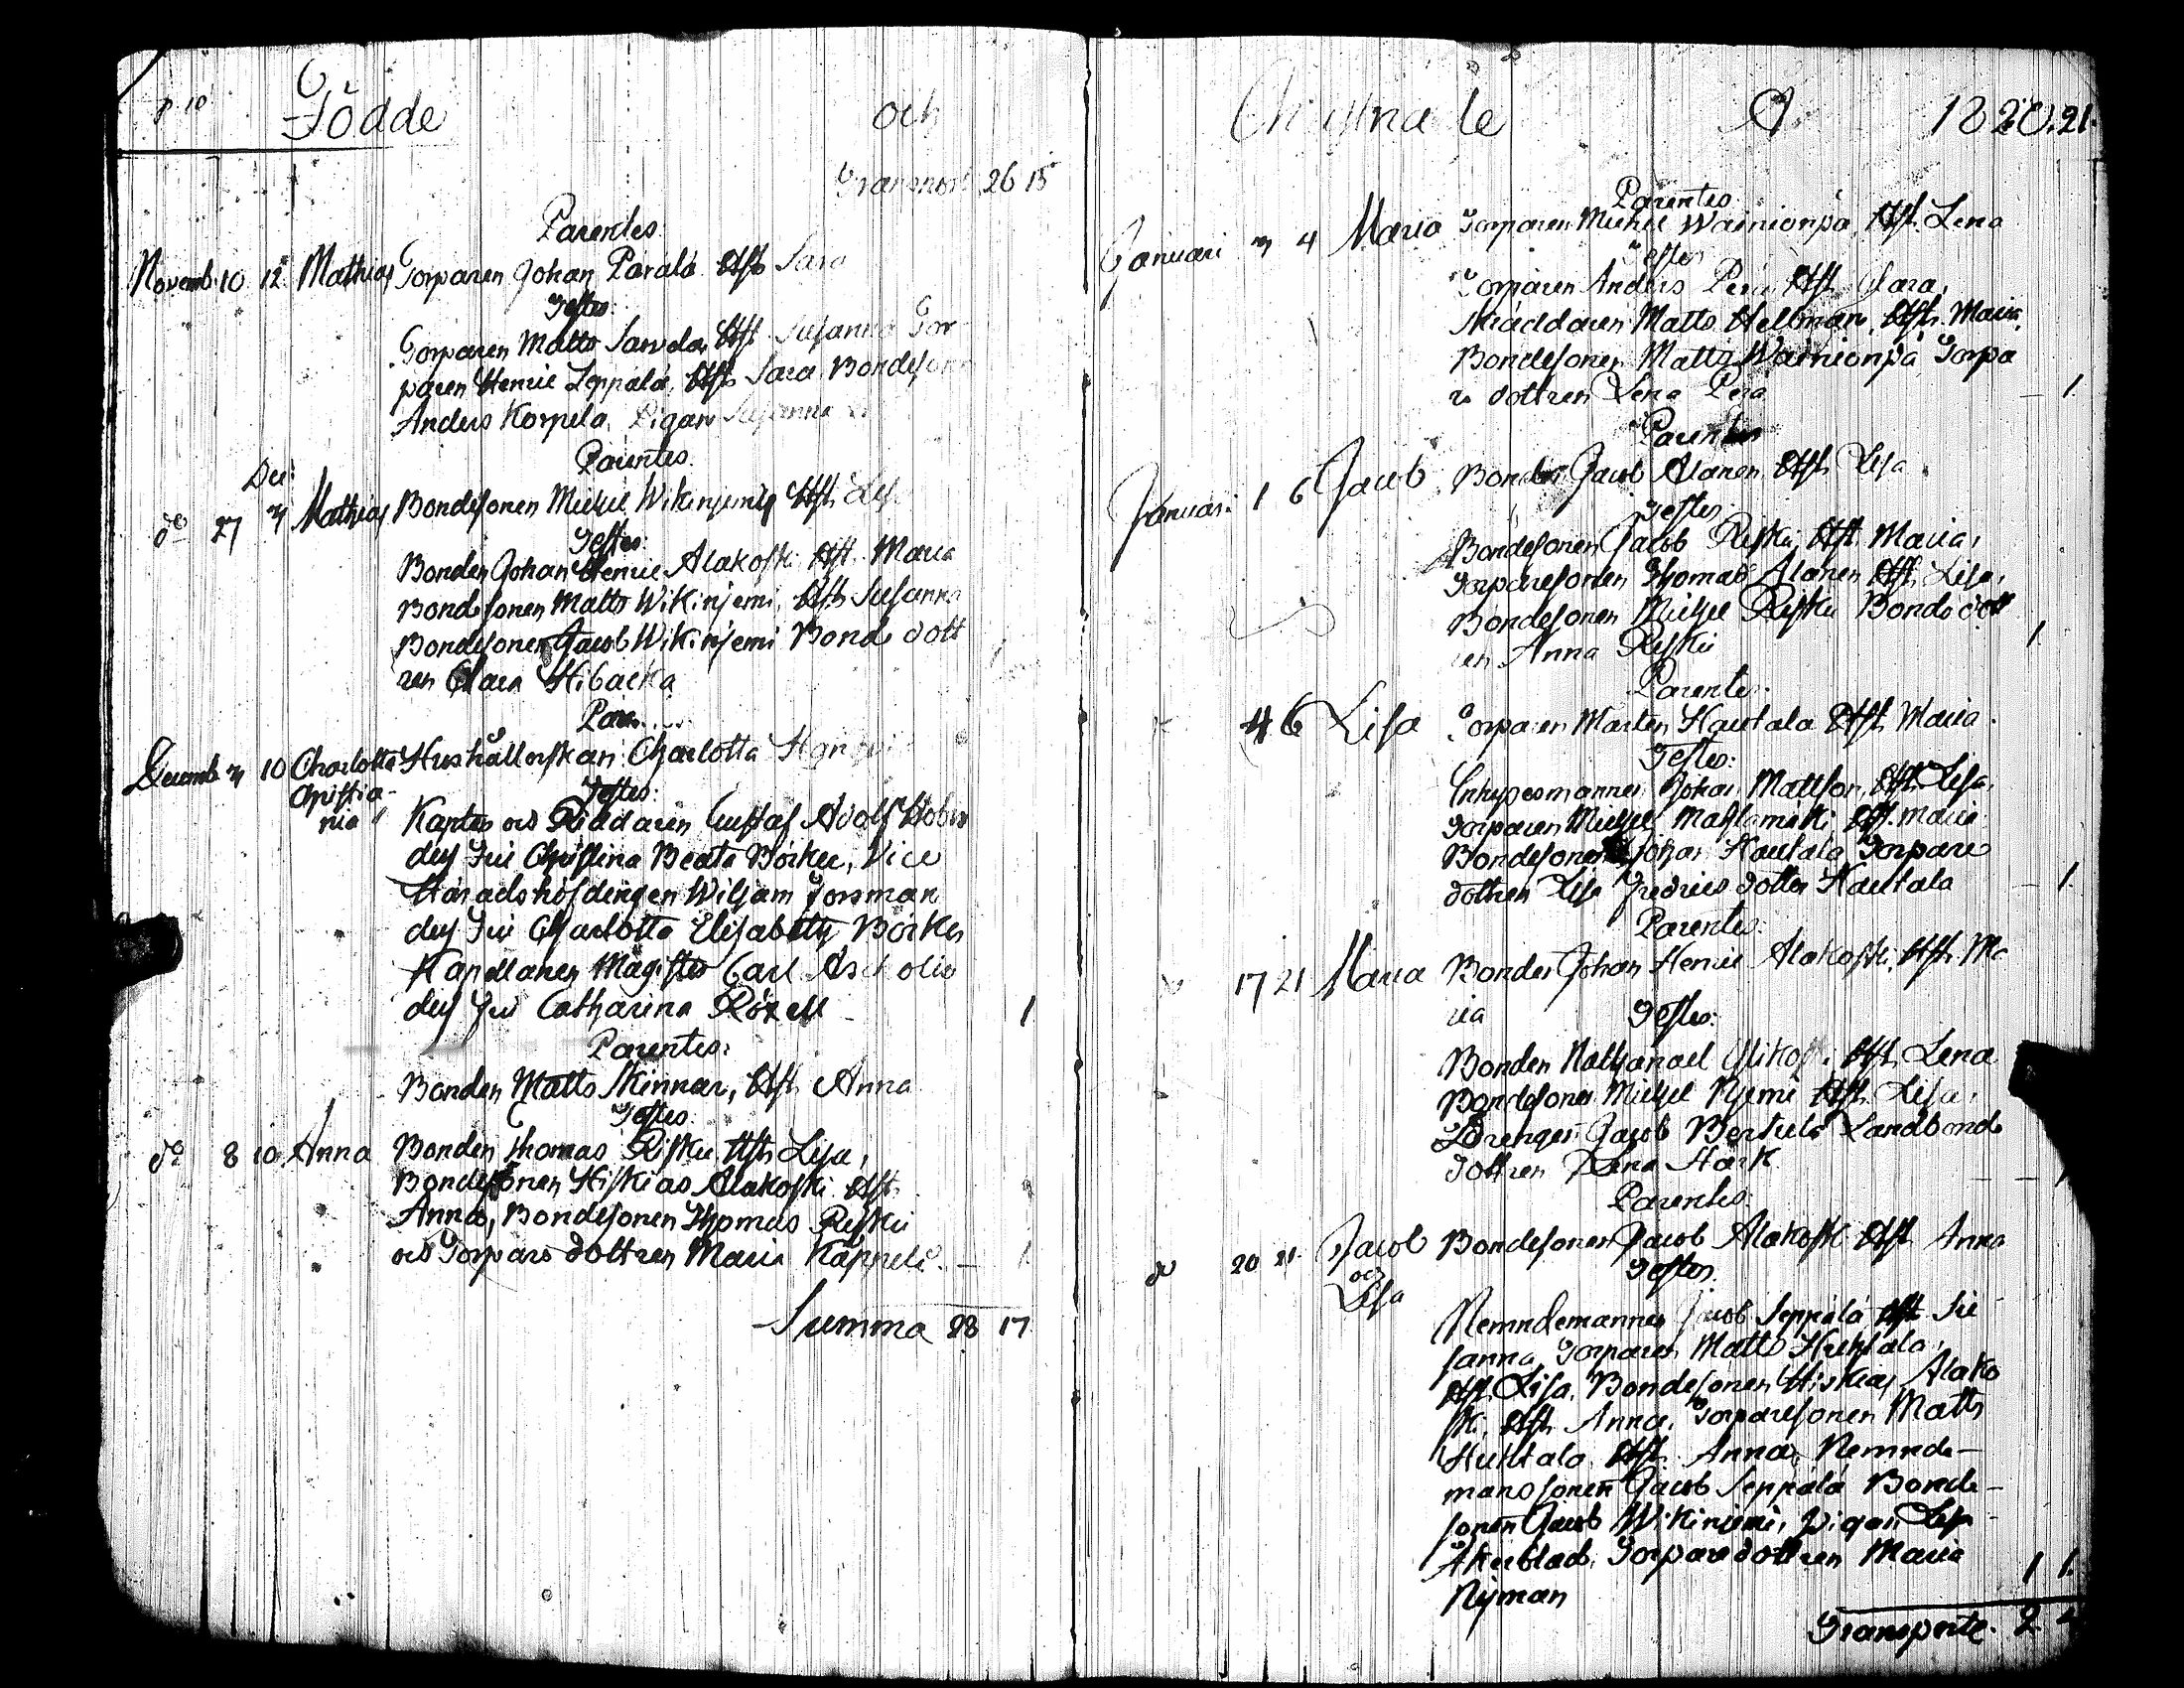 p. 10
Födde och
Transport 26 15
Parentes
Novemb. 10 12 Mathias Torparen Johan Parala Hst. Sara
Testes:
Torparen Matts Sarvela Hst. Susanna Tor
paren Henric Leppälä, Hst. Sara Bondeson
Anders Korpela, Pigan Susanna
Parentes.
Dec:
do 27 3 Mathias Bondesonen Michel Wikinjemi Hst. Lis
Testes:
Bonden Johan Henric Alakoski Hst. Maria
Bondesonen Matts Wikinjemi, Hst. Susanna
Bondesonen Jacob Wikinjemi Bonde dott
ren Clara Hibacka
Paren
Decemb. 3 10 Charlotta Hushållerskan Charlotta
Christia-
nia
Testes:
Kapten och Riddaren Gustaf Adolf
dess Fru Christina Beata Börker, Vice
Häradshöfdingen Wiljam Forsman
dess Fru Charlotta Elisabeth Börker
Kapellanen Magister Carl Ascholin
dess Fru Catharina 1
Parentes:
Bonden Matts Skinnar, Hst. Anna
Testes
do 8 10 Anna Bonden Thomas Risku Hst. Lisa,
Bondesonen Hiskias Alakoski Hst.
Anna, Bondesonen Thomas Risku
och Torpare dottren Maria Käppelä. — 1
Summa 28 17
Christnade A. 1820.21.
Parentes
Januari 3 4 Maria Torparen Michel Wainionpä, Hst. Lena
Testes
Torparen Anders Perä Hst. Clara,
Skräddaren Matts Hellman, Hst. Maria,
Bondesonen Matts Wainionpä Torpa
re dottren Lena Perä — 1.
Parentes
Januari 1 6 Jacob Bonden Jacob Alanen Hst. Lisa.
Testes
Bondesonen Jacob Risku Hst. Maria,
Torparesonen Thomas Alanen Hst. Lisa,
Bondesonen Michel Risku Bonde dott
ren Anna Risku 1.
Parentes.
4 6 Lisa Torparen Marten Hautala Hst. Maria.
Testes:
Inhysesmannen Johan Mattson, Hst. Lisa,
Torparen Michel Mastamäki Hst. Maria
Bondesonen Johan Hautala, Torpare
dottren Lisa Fredrics dotter Hautala — 1.
Parentes:
17 21 Maria Bonden Johan Henric Alakoski, Hst. Ma
ria Testes:
Bonden Nathanael Hst. Lena
Bondesonen Michel Njemi Hst. Lisa,
Drengen Jacob Bertula Landbonde
dottren Lena Stark — — 1
Parentes:
do 20 21 Jacob Bondesonen Jacob Alakoski Hst. Anna
och Testes.
Lisa
Nemndemannen Jacob Seppälä Hst. Su
sanna, Torparen Matts Huhtala,
Hst. Lisa, Bondesonen Hiskias Alako
ski, Hst. Anna, Torparesonen Matts
Huhtala Hst. Anna, Nemnde-
mans sonen Jacob Seppälä Bonde-
sonen Jacob Wikinjemi, Pigan Lisa
Åkerblad, Torpare dottren Maria 1 1.
Nyman
Transporte. 2 4